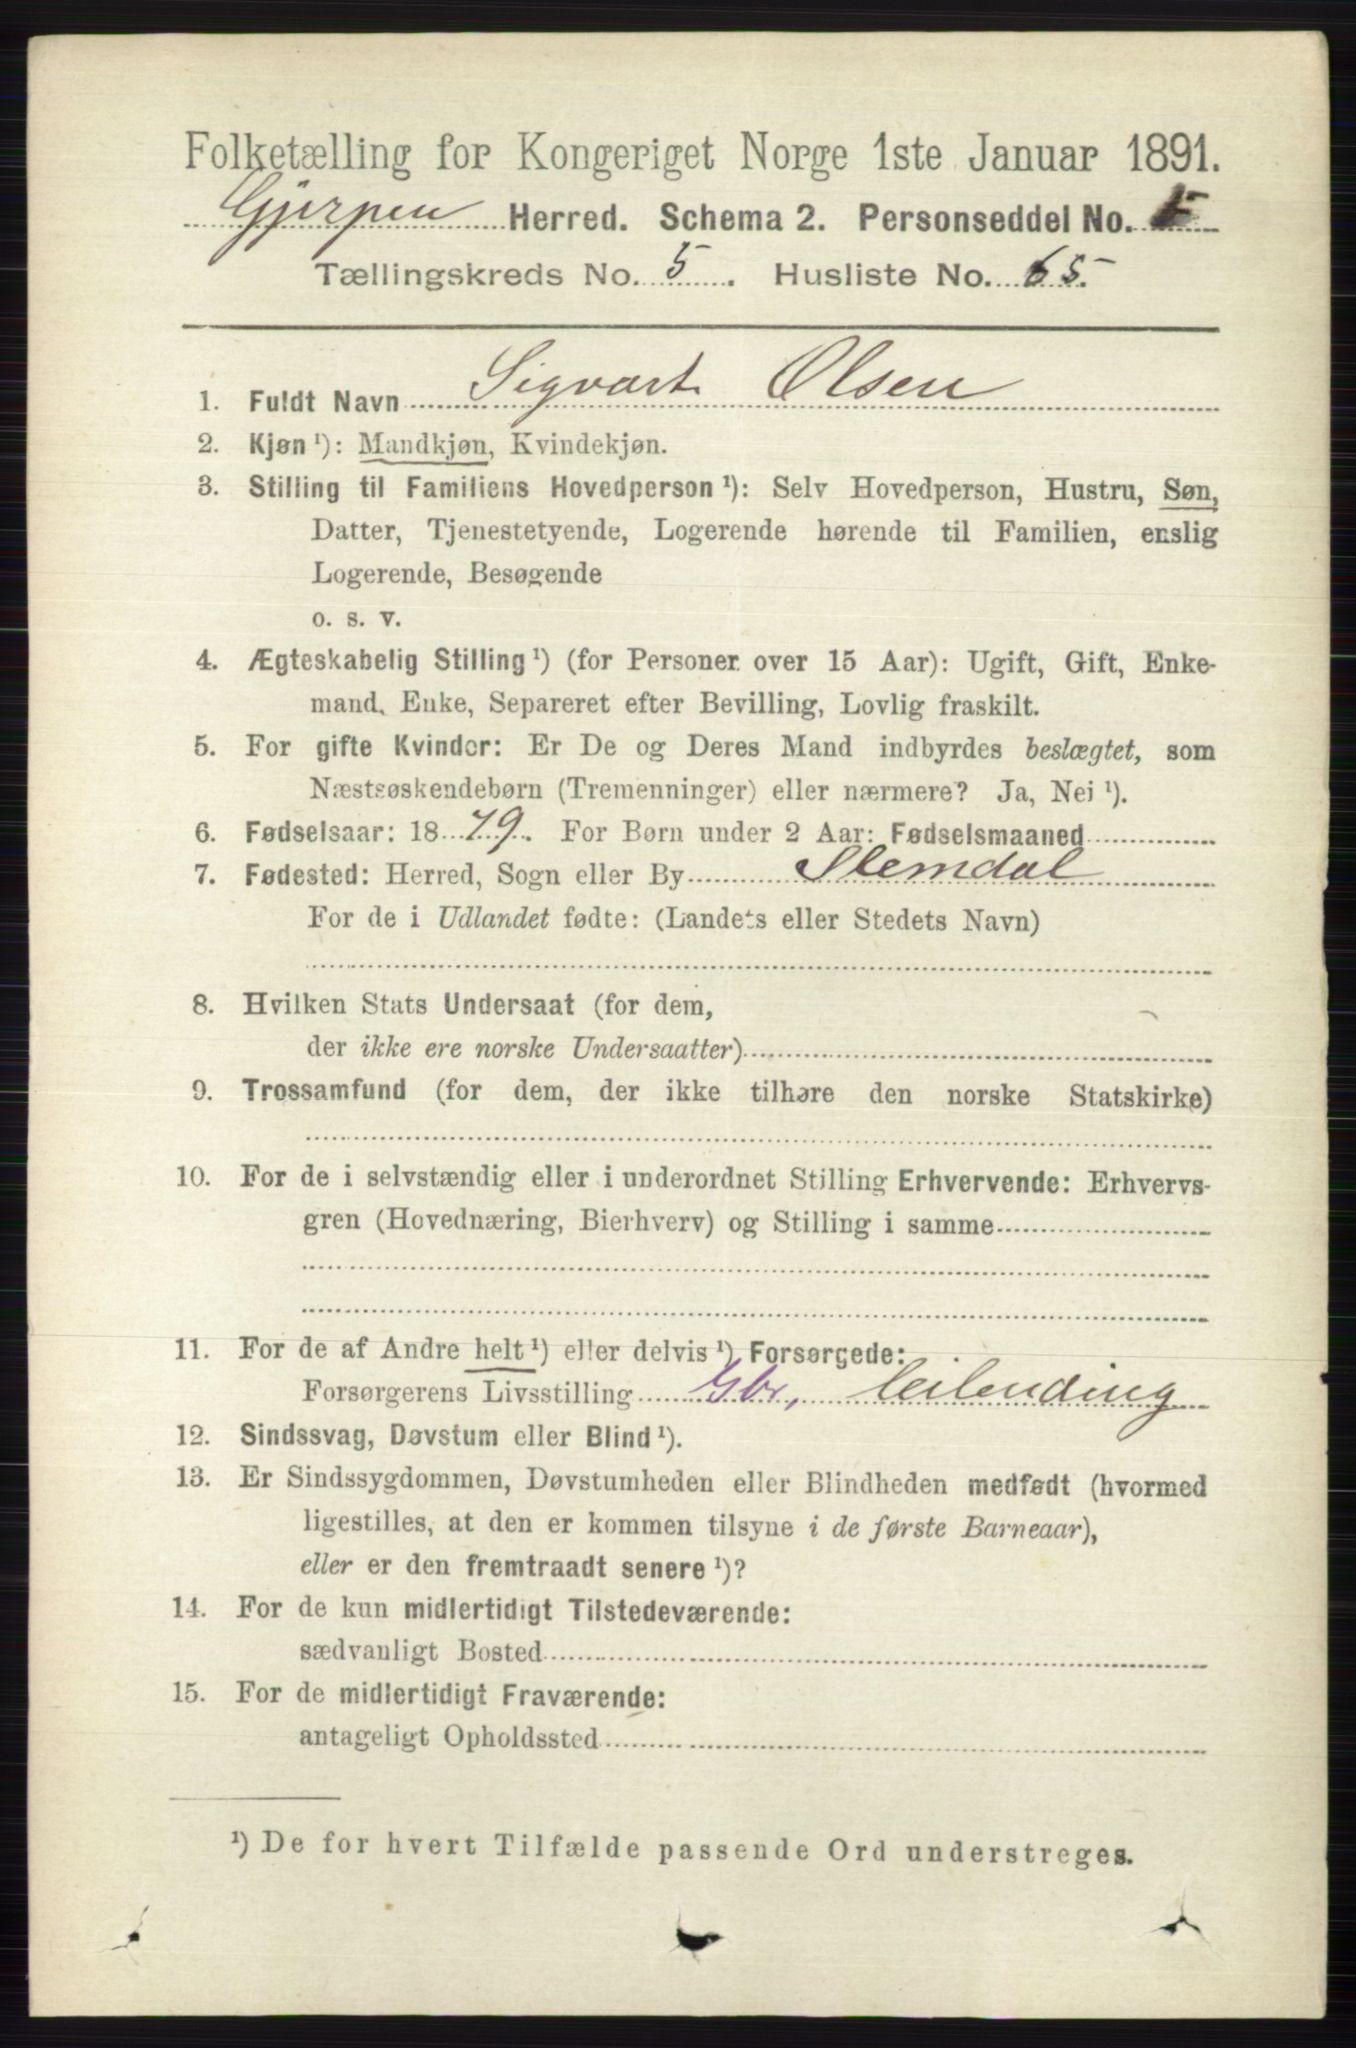 Folketælling for Kongeriget Norge 1ste Januar 1891.
Gjerpen Herred. Schema 2. Personseddel No.
Tællingskreds No. 5. Husliste No. 65.
1. Fuldt Navn Sigvart Olsen
2. Kjøn ¹): Mandkjøn, Kvindekjøn.
3. Stilling til Familiens Hovedperson ¹): Selv Hovedperson, Hustru, Søn,
Datter, Tjenestetyende, Logerende hørende til Familien, enslig
Logerende, Besøgende
o. s. v.
4. Ægteskabelig Stilling ¹) (for Personer over 15 Aar): Ugift, Gift, Enke-
mand, Enke, Separeret efter Bevilling, Lovlig fraskilt.
5. For gifte Kvinder: Er De og Deres Mand indbyrdes beslægtet, som
Næstsøskendebørn (Tremenninger) eller nærmere? Ja, Nei ¹).
6. Fødselsaar: 1879. For Børn under 2 Aar: Fødselsmaaned
7. Fødested: Herred, Sogn eller By Slemdal
For de i Udlandet fødte: (Landets eller Stedets Navn)
8. Hvilken Stats Undersaat (for dem,
der ikke ere norske Undersaatter)
9. Trossamfund (for dem, der ikke tilhøre den norske Statskirke)
10. For de i selvstændig eller i underordnet Stilling Erhvervende: Erhvervs-
gren (Hovednæring, Bierhverv) og Stilling i samme
11. For de af Andre helt ¹) eller delvis ¹) Forsørgede:
Forsørgerens Livsstilling Gbr, Leilending
12. Sindssvag, Døvstum eller Blind ¹).
13. Er Sindssygdommen, Døvstumheden eller Blindheden medfødt (hvormed
ligestilles, at den er kommen tilsyne i de første Barneaar),
eller er den fremtraadt senere ¹)?
14. For de kun midlertidigt Tilstedeværende:
sædvanligt Bosted
15. For de midlertidigt Fraværende:
antageligt Opholdssted
¹) De for hvert Tilfælde passende Ord understreges.